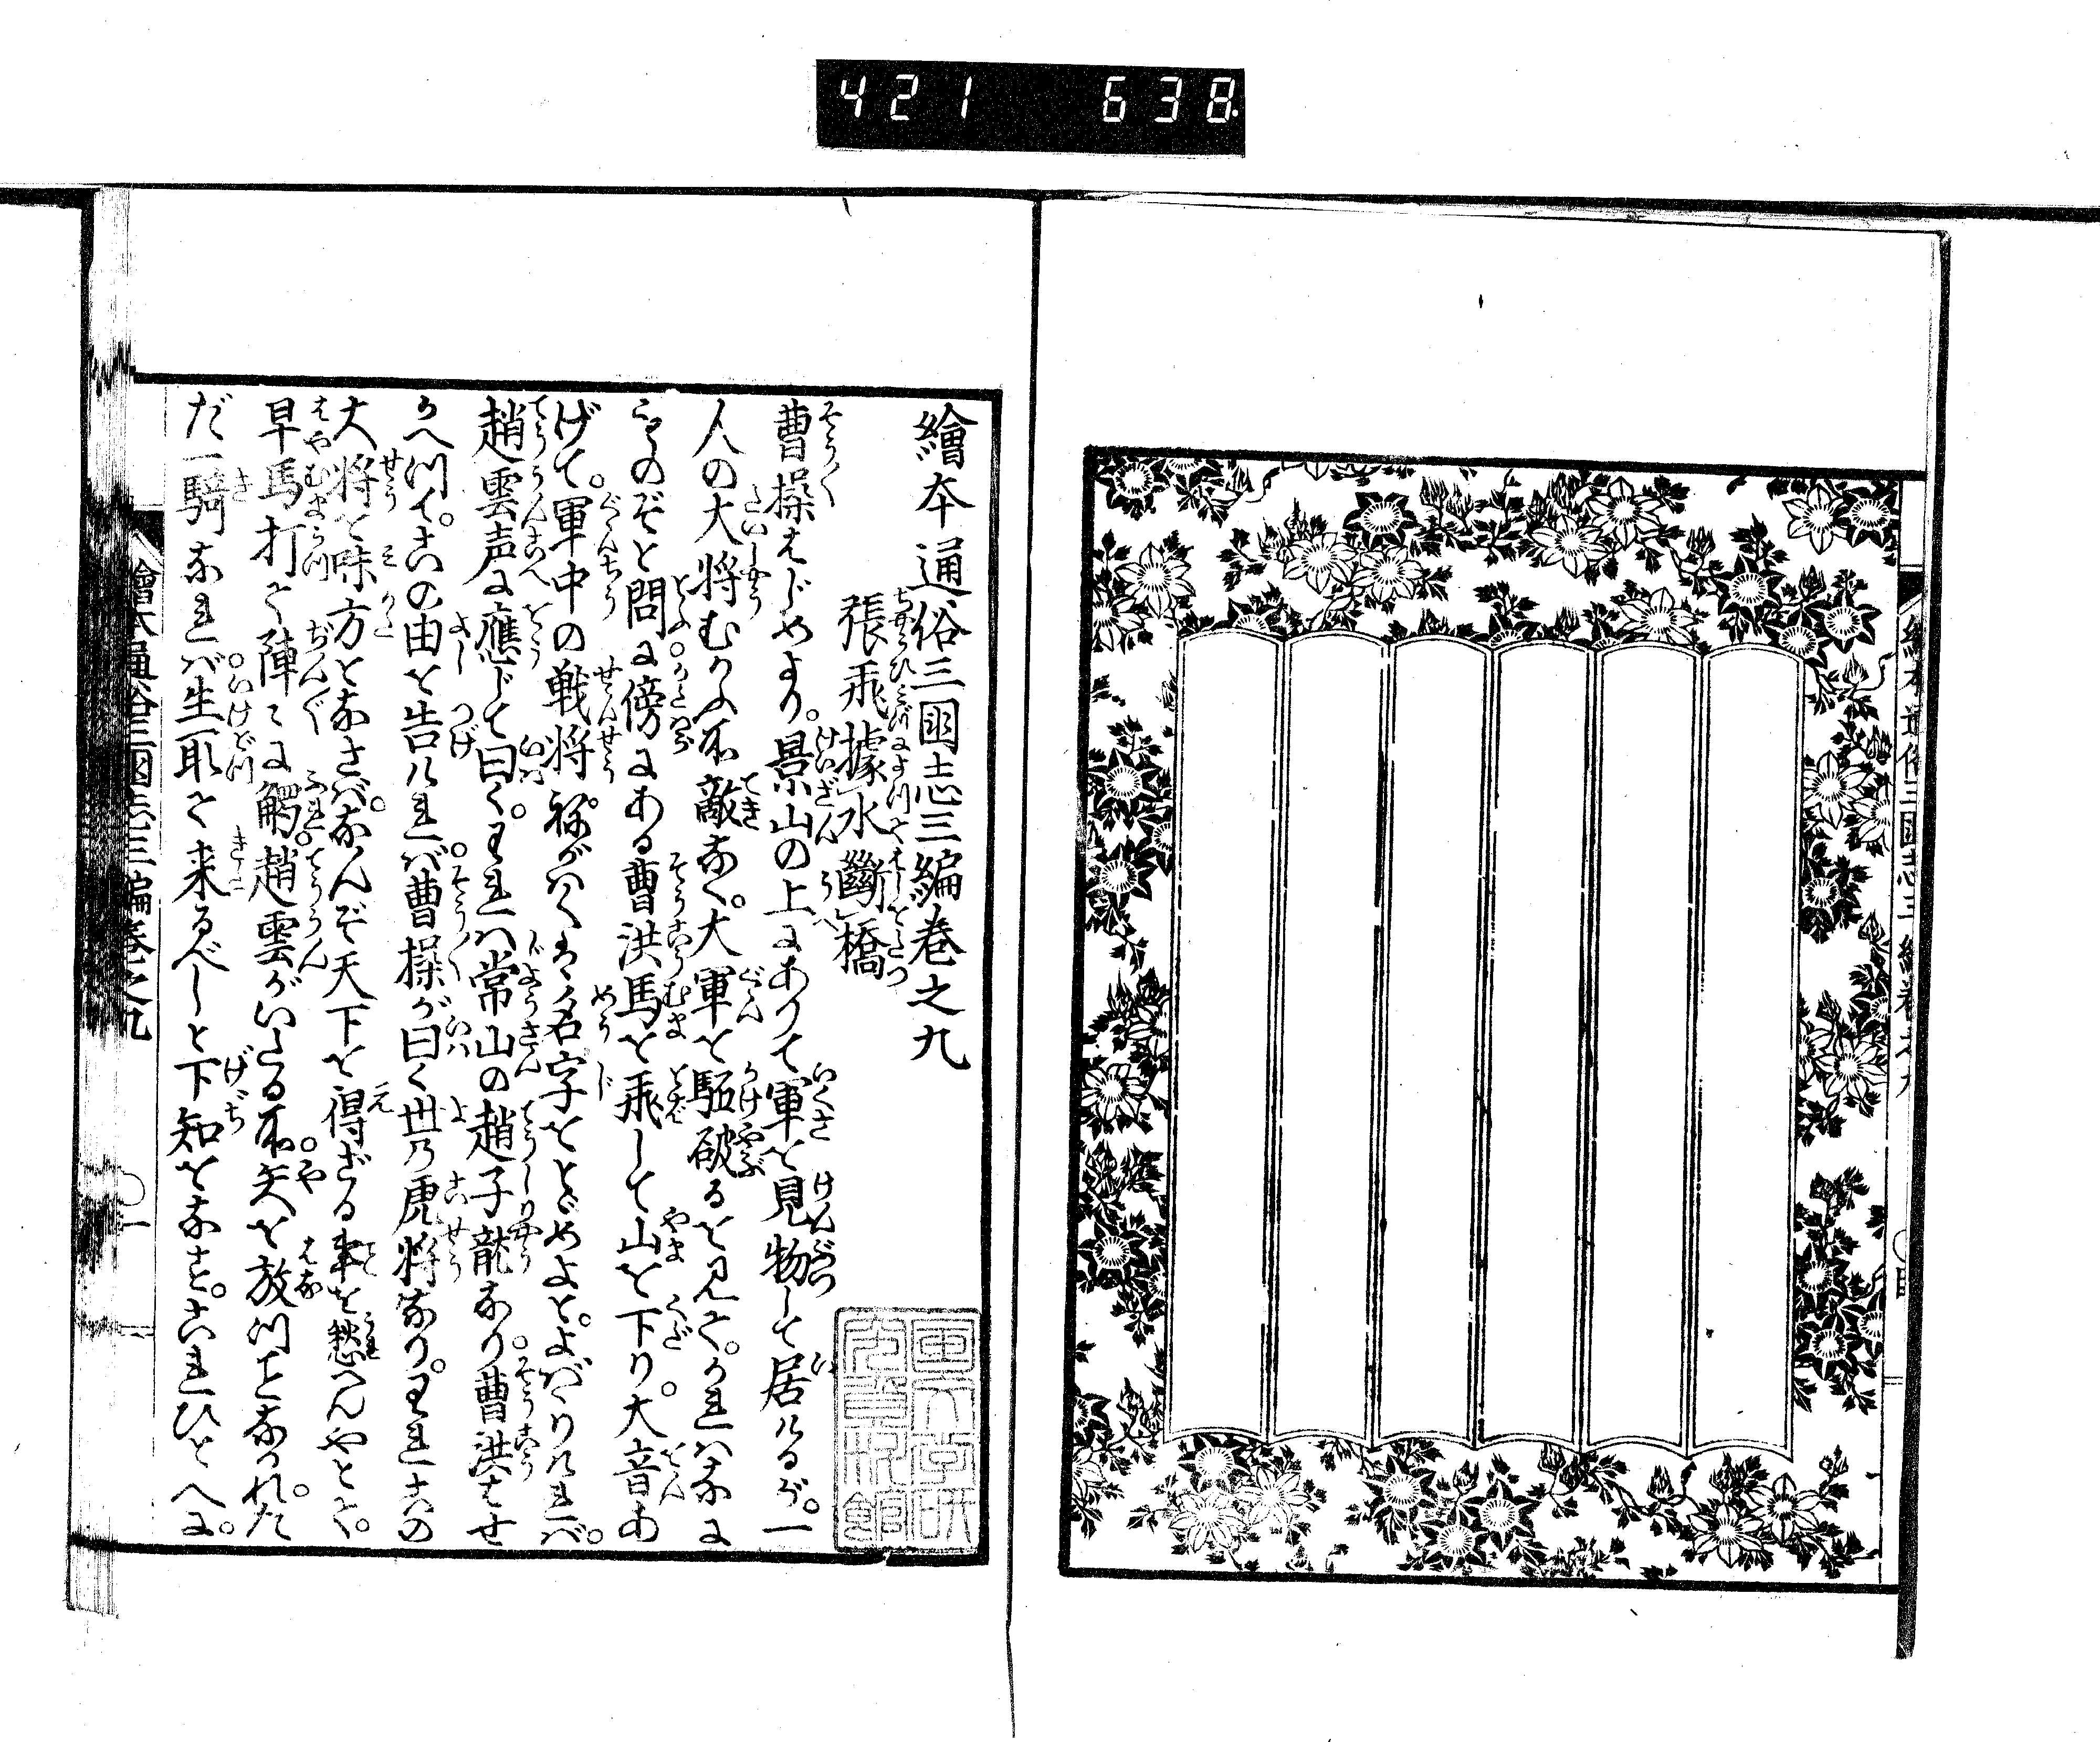 421 638
繪本通俗三國志三編巻之九
張飛據水斷橋
曹操はじめより。景山の上にありて軍を見物して居けるが。一
人の大将むかふ所敵なく。大軍を駈破るを見て。かれは
のぞと問に傍にある曹洪馬を飛して山を下り。大音あ
げて。軍中の戦将。ねがはくは名字をとゞめよと。よばゝりければ。
趙雲声に應じて曰く。われは常山の趙子龍なり。曹洪はせ
かへつて。この由を告ければ。曹操が曰く世の虎将なり。われこの
大将を味方となさば。なんぞ天下を得ざる事を愁へんやとて。
早馬打て陣々に觸。趙雲がいたる所。矢を放つことなかれ。た
だ一騎なれば生取て来るべしと下知をなす。これひとへに。
繪本通俗三國志三編巻之九